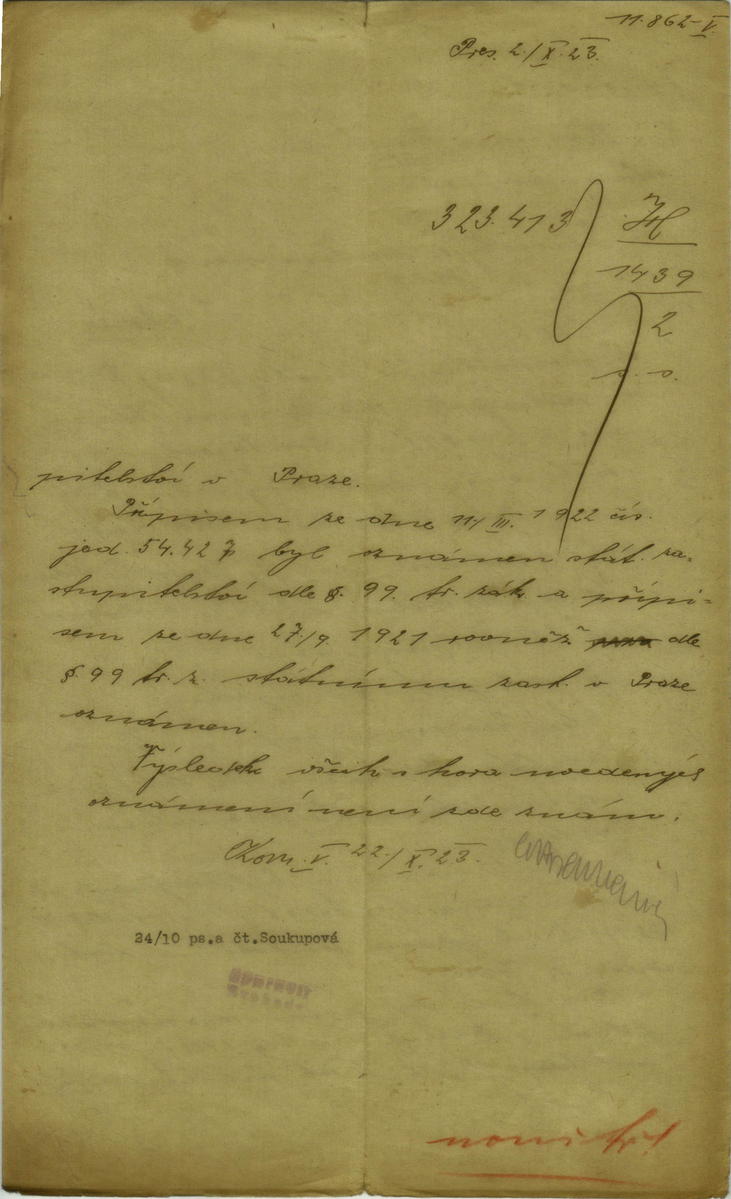 11.862-V
Pres. 2./X. 23.
323.413
H
1439
2
s. s.
pitelství v Praze.
Přípisem ze dne 11/III. 1922 čís.
jed. 54.427 byl oznámen stát. za-
stupitelství dle §. 99. tr. zák. a přípi-
sem ze dne 27./9. 1921 rovněž dle
§ 99 tr. z. státnímu zast. v Praze
oznámen.
Výsledek všech shora uvedených
oznámení není zde znám.
Kom. V. 22./X. 23.
24/10 ps.a čt.Soukupová